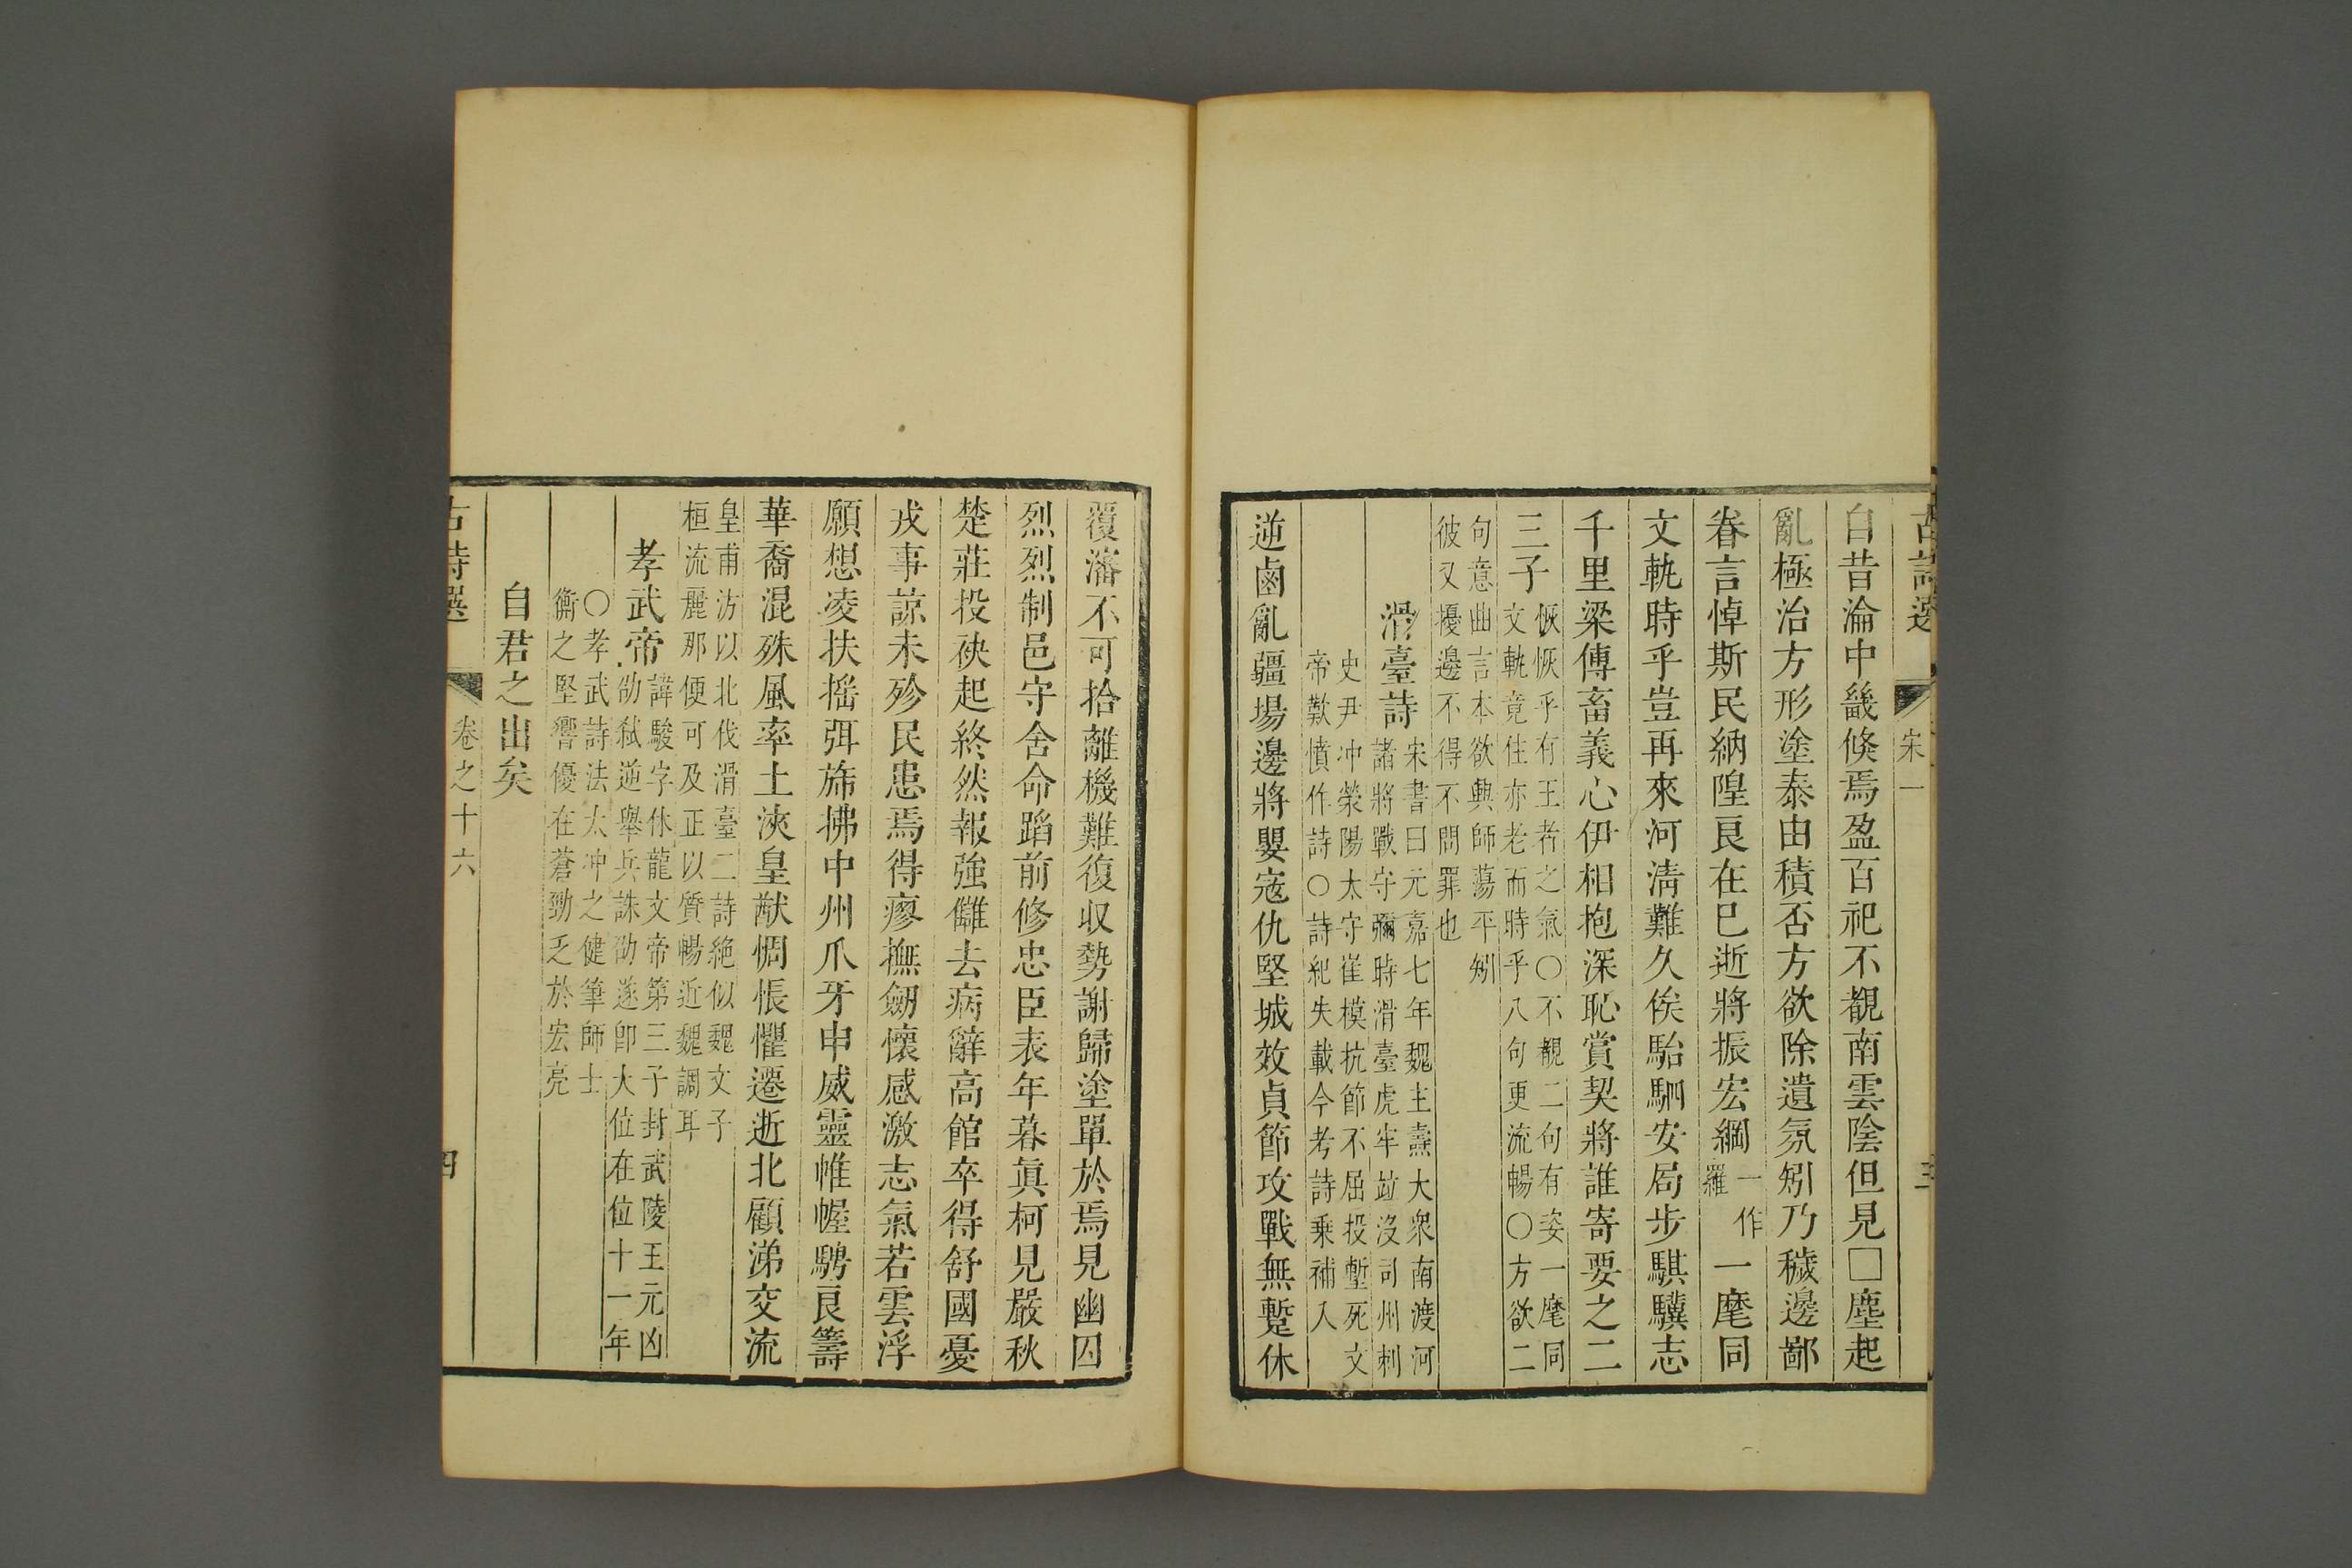 古詩選 宋一 三
自昔淪中畿倐焉盈百祀不覩南雲陰但見□塵起
亂極治方形塗泰由積否方欲除遺氛矧乃穢邊鄙
眷言悼斯民納隍良在巳逝將振宏綱一作羅一麾同
文軌時乎豈再來河淸難久俟駘駟安局步騏驥志
千里梁傅畜義心伊相抱深恥賞契將誰寄要之二
三子恢恢乎有王者之氣〇不覩二句有姿一麾同
文軌竟住亦老而時乎八句更流暢〇方欲二
句意曲言本欲興師蕩平矧
彼又擾邊不得不問罪也
滑臺詩宋書曰元嘉七年魏主燾大衆南渡河
諸將戰守彌時滑臺虎牢竝沒司州刺
史尹冲滎陽太守崔模抗節不屈投塹死文
帝歎憤作詩〇詩紀失載今考詩乗補入
逆鹵亂疆場邊將嬰寇仇堅城效貞節攻戰無蹔休
覆瀋不可拾離機難復収勢謝歸塗單於焉見幽囚
烈烈制邑守舍命蹈前修忠臣表年暮眞柯見嚴秋
楚莊投袂起終然報強讎去病辭高館卒得舒國憂
戎事諒未殄民患焉得瘳撫劒懷感激志氣若雲浮
願想凌扶摇弭斾拂中州爪牙申威靈帷幄騁良籌
華裔混殊風率土浹皇猷惆悵懼遷逝北顧涕交流
皇甫汸以北伐滑臺二詩絶似魏文子
桓流麗那便可及正以質暢近魏調耳
孝武帝諱駿字休龍文帝第三子封武陵王元凶
劭弑逆舉兵誅劭遂卽大位在位十一年
〇孝武詩法太冲之健筆師士
衡之堅響優在蒼勁乏於宏亮
自君之出矣
古詩選 卷之十六 四